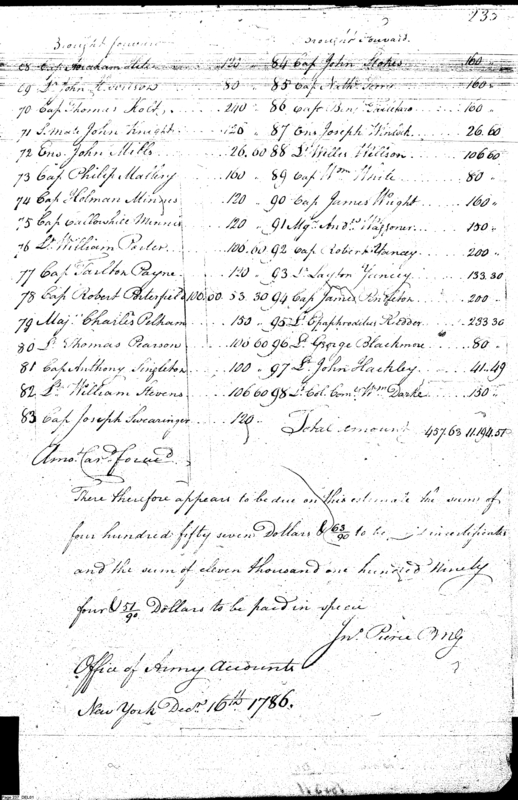 235
Brought forward
68 Cap Abraham Hite 120
69 Lt John Harrison 80 "
70 Cap Thomas Holt 240 "
71 John Knight 120 "
72 Ens. John Mills 26.60
73 Cap Philip Mallory 160 "
74 Cap Holman Minnis 120 "
75 Cap Callowhile Minnis 120 "
76 Lt William Porter 100.60
77 Cap Tarlton Payne 120 "
78 Cap Robert Porterfield 100.00 53.30
79 Maj. Charles Pelham 150 "
80 Lt Thomas Pearson 100 60
81 Cap Anthony Singleton 100 "
82 Lt William Stevens 106 60
83 Cap Joseph Swearinger 120
Amo. Car. forward
Brought Forward.
84 Cap John Stokes 160
85 Cap Nath. Terry 160 "
86 Cap 160 "
87 Ens Joseph Winlock 26.60
88 Lt Willis Willson 106 60
89 Cap Wm White 80 "
90 Cap James Wright 160 "
91 Mjr And. Waggoner 150 "
92 Cap Robert Yancy 200 "
93 Lt Layton Yancey 133.30
94 Cap James 200 "
95 Lt Epaphroditus Rudder 233 30
96 Lt George Blackmore 80 "
97 Lt John Hackley 41.49
98 Lt Col. Com. Wm Darke 150 "
Total amount 457.63 11.194.51
There therefore appears to be due on this estimate the sum of
four hundred fifty seven Dollars & 63/90 to be in certificates
and the sum of eleven thousand one hundred Ninety
four & 51/90 Dollars to be paid in specie
Jno Pierce
Office of Army Accounts
New York Decr 16th 1786.